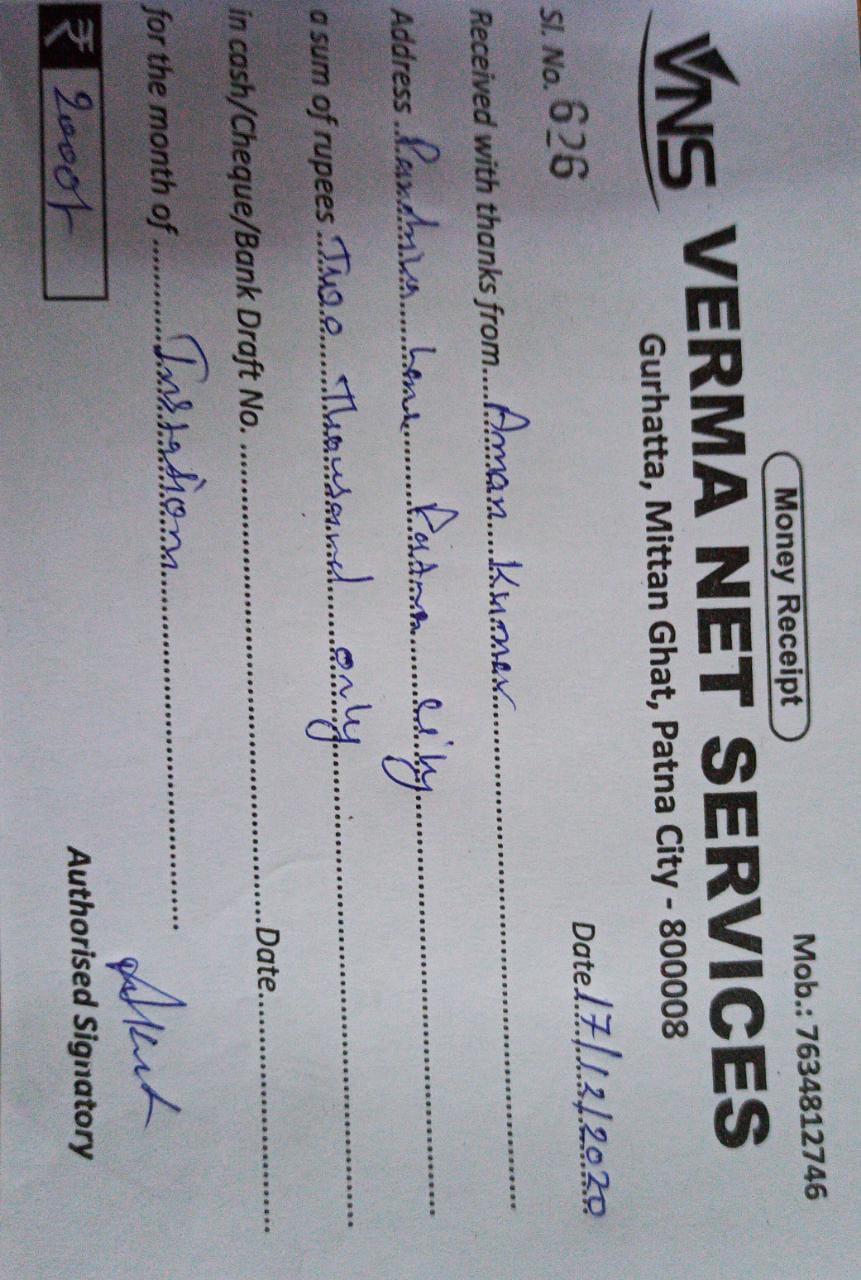 Money Receipt
Mob.: 7634812746
VNS
VERMA NET SERVICES
Gurhatta, Mittan Ghat, Patna City - 800008
Sl. No. 626
Date 17/12/2020
Received with thanks from Aman Kumar
Address Lane Patna City
a sum of rupees Two Thousand only
in cash/Cheque/Bank Draft No. Date
for the month of
₹ 2000/-
Authorised Signatory